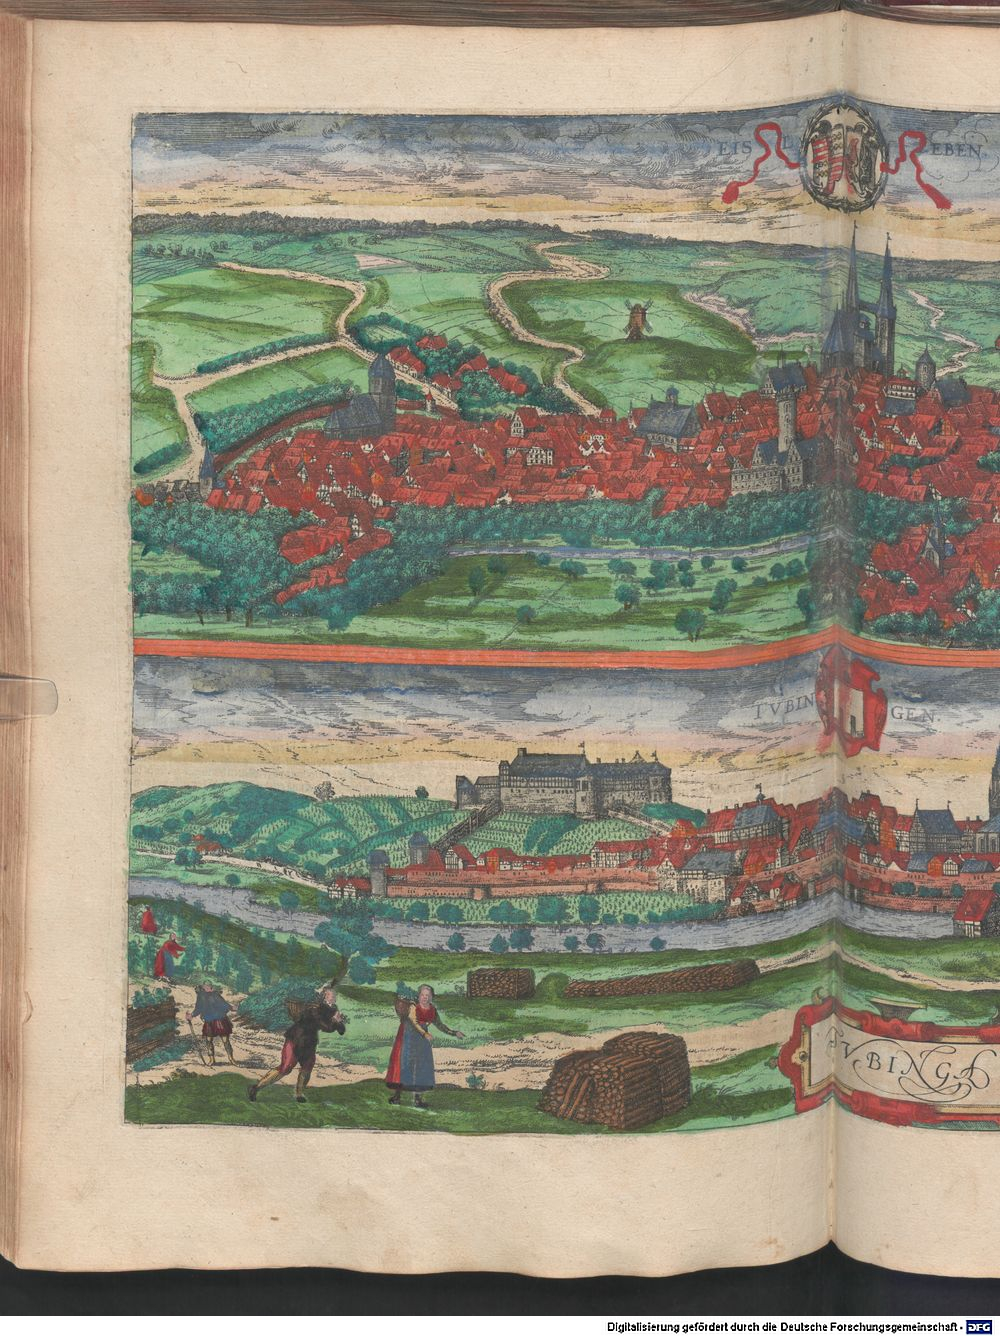 EISL EBEN.
TVBIN GEN.
TVBINGA
Digitalisierung gefördert durch die Deutsche Forschungsgemeinschaft - DFG